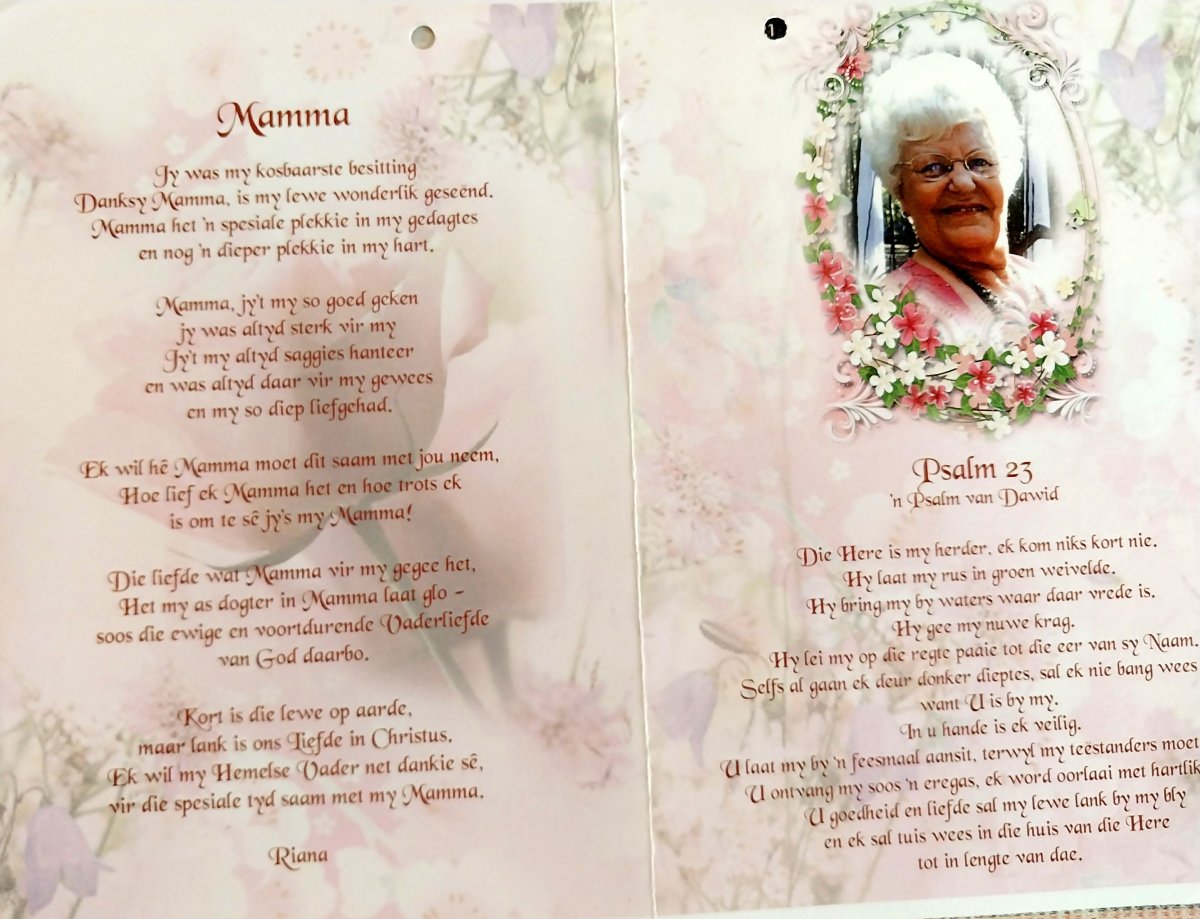 Mamma
Jy was my kosbaarste besitting
Danksy Mamma, is my lewe wonderlik geseënd.
Mamma het 'n spesiale plekkie in my gedagtes
en nog 'n dieper plekkie in my hart.
Mamma, jy't my so goed geken
jy was altyd sterk vir my
Jy't my altyd saggies hanteer
en was altyd daar vir my gewees
en my so diep liefgehad.
Ek wil hê Mamma moet dit saam met jou neem,
Hoe lief ek Mamma het en hoe trots ek
is om te sê jy's my Mamma!
Die liefde wat Mamma vir my gegee het,
Het my as dogter in Mamma laat glo -
soos die ewige en voortdurende Vaderliefde
van God daarbo.
Kort is die lewe op aarde,
maar lank is ons Liefde in Christus.
Ek wil my Hemelse Vader net dankie sê,
vir die spesiale tyd saam met my Mamma.
Riana
Psalm 23
'n Psalm van Dawid
Die Here is my herder, ek kom niks kort nie.
Hy laat my rus in groen weivelde.
Hy bring my by waters waar daar vrede is.
Hy gee my nuwe krag.
Hy lei my op die regte paaie tot die eer van sy Naam.
Selfs al gaan ek deur donker dieptes, sal ek nie bang wees
want U is by my.
In u hande is ek veilig.
U laat my by 'n feesmaal aansit, terwyl my teëstanders moet
U ontvang my soos 'n eregas, ek word oorlaai met hartlik
U goedheid en liefde sal my lewe lank by my bly
en ek sal tuis wees in die huis van die Here
tot in lengte van dae.